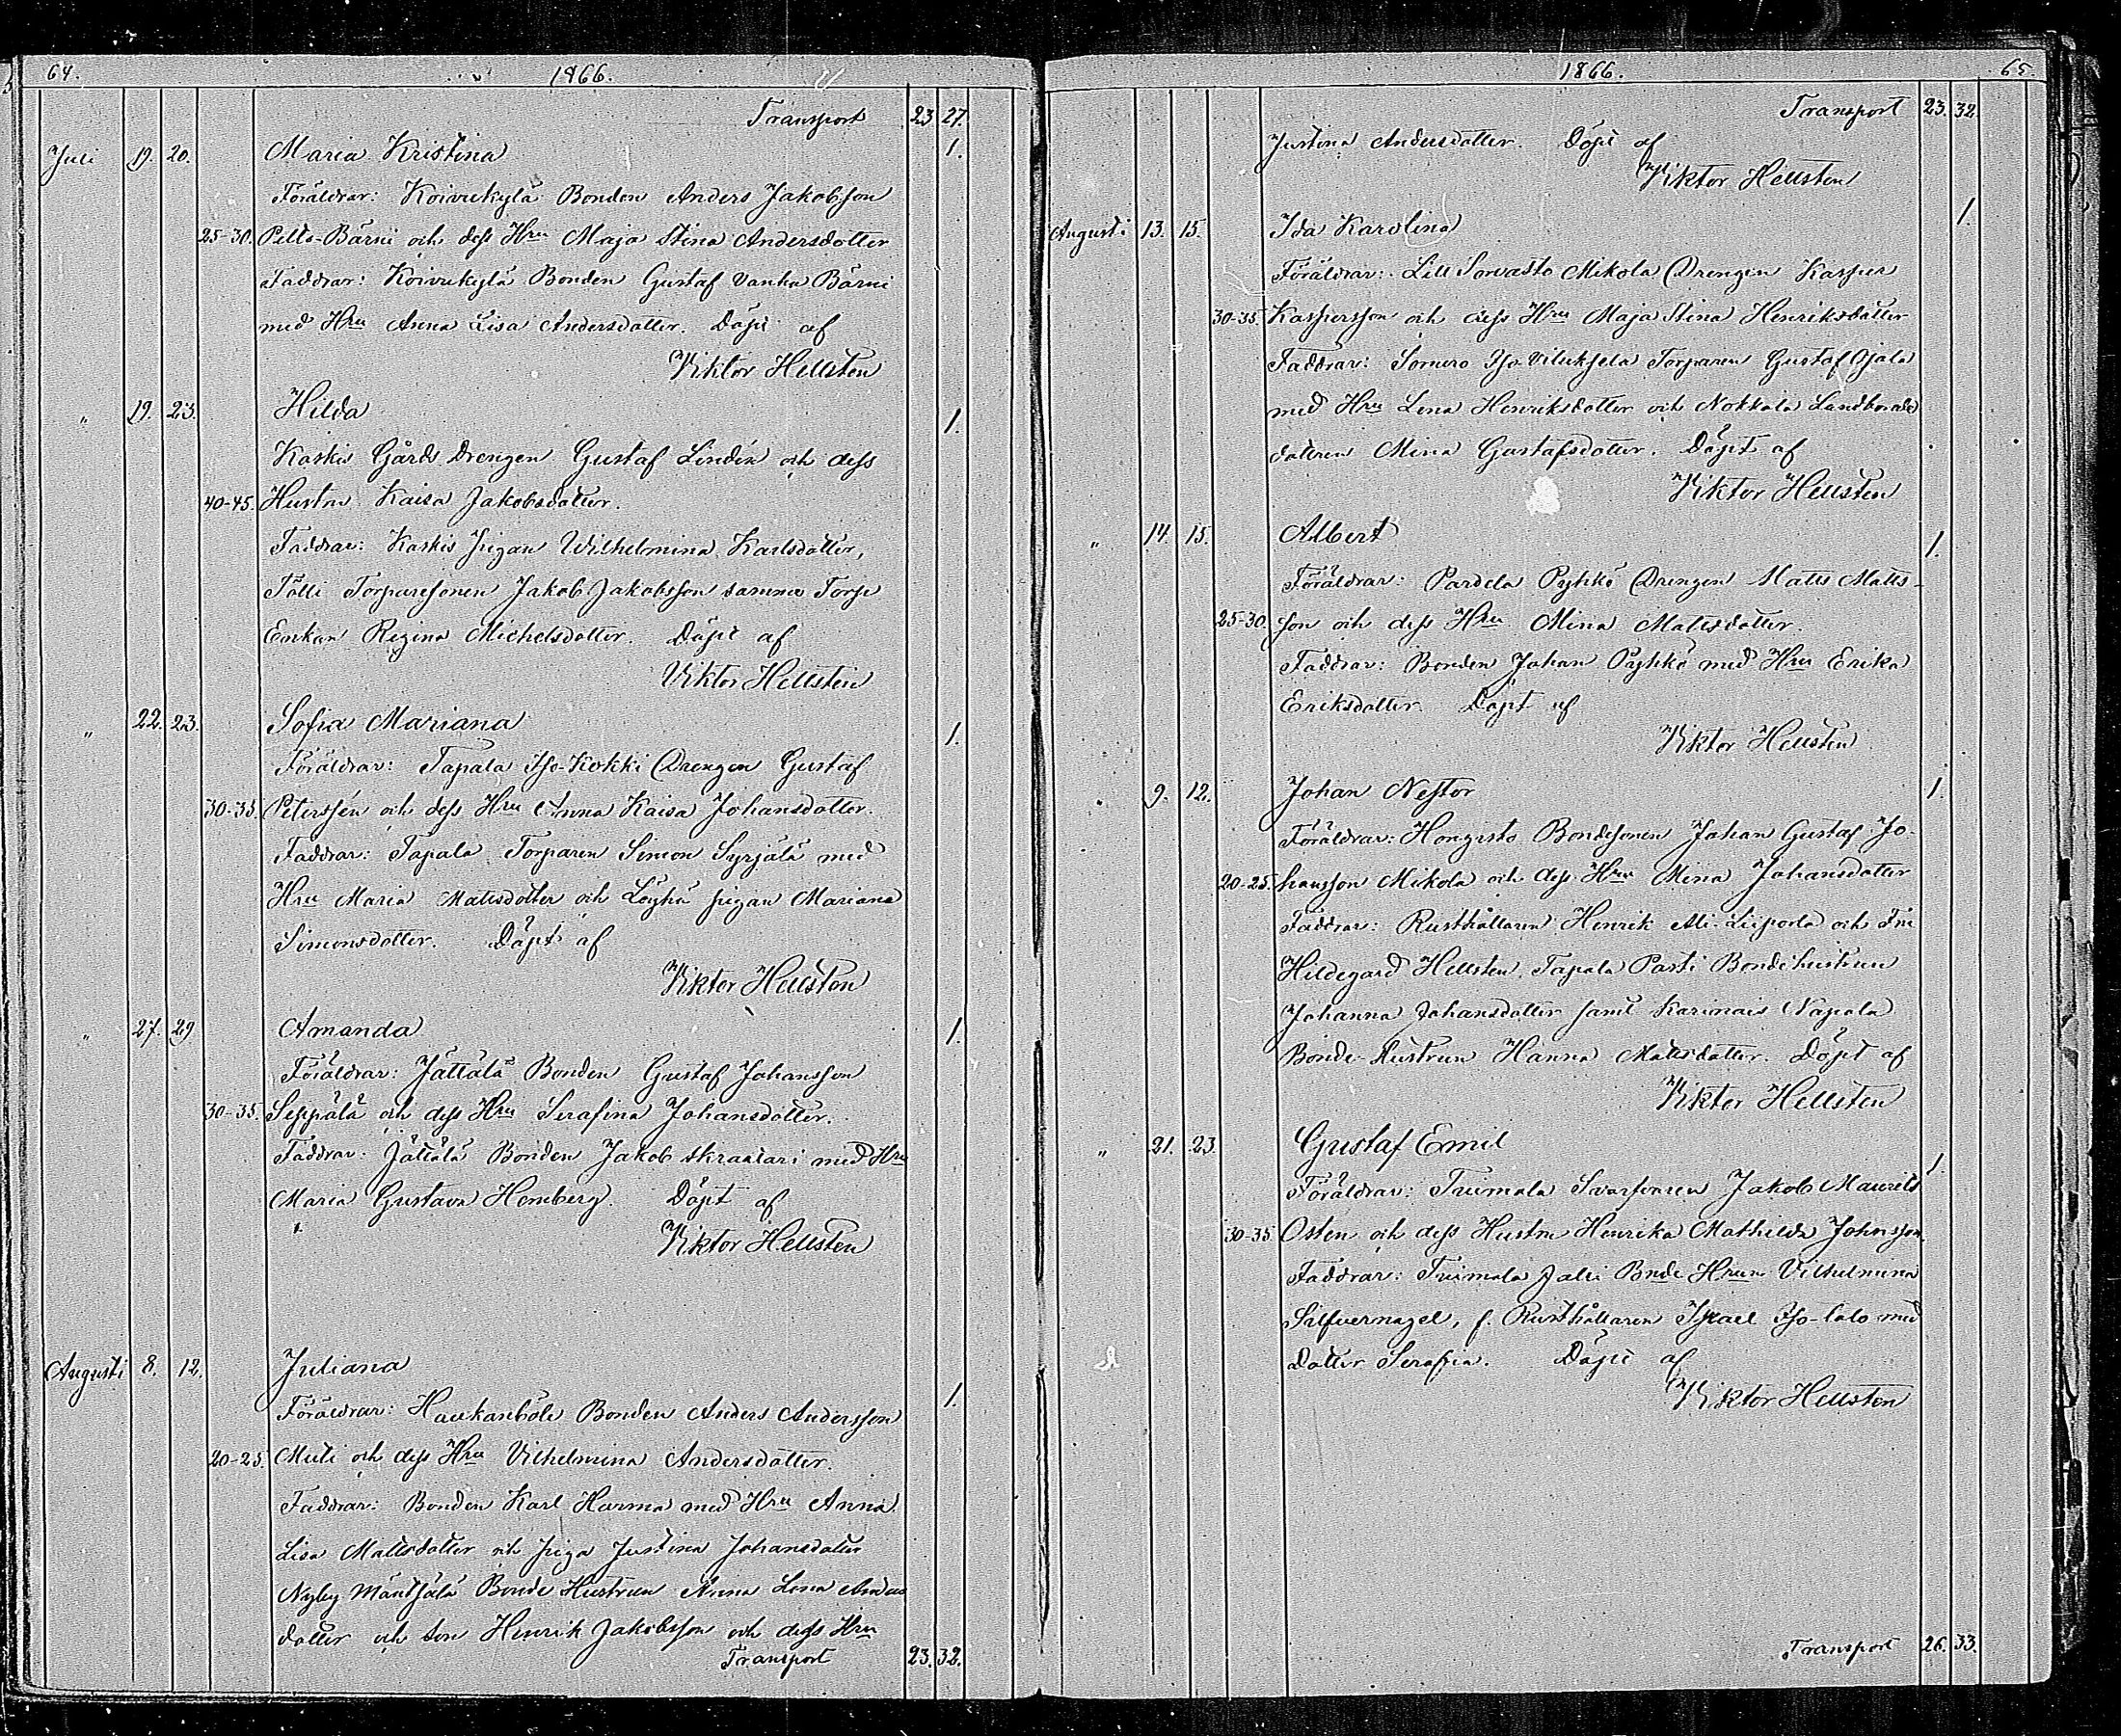 64. 1866.
Transport 23 27.
Juli 19. 20. Maria Kristina 1.
Föräldrar: Koivukylä Bonden Anders Jakobsson
25-30. Pelto-Bärni och dess Hru Maja Stina Andersdotter
Faddrar: Koivukylä Bonden Gustaf Vanha Bärni
med Hru Anna Lisa Andersdotter. Döpt af
Viktor Hellsten
" 19. 23. Hilda 1.
Kaskis Gårds Drengen Gustaf Lindén och dess
40-45. Hustru Kaisa Jakobsdotter.
Faddrar: Kaskis pigan Wilhelmina Karlsdotter,
Tölli Torparesonen Jakob Jakobsson samma Torp
Enkan Regina Michelsdotter. Döpt af
Viktor Hellsten
" 22. 23. Sofia Mariana 1.
Föräldrar: Tapala Iso-Kokki Drengen Gustaf
30-35. Petersson och dess Hru Anna Kaisa Johansdotter.
Faddrar: Tapala Torparen Simon Syrjälä med
Hru Maria Mattsdotter och Löyhä pigan Mariana
Simonsdotter. Döpt af
Viktor Hellsten
" 27. 29 Amanda 1.
Föräldrar: Jättälä Bonden Gustaf Johansson
30-35. Seppälä och dess Hru Serafina Johansdotter.
Faddrar: Jättälä Bonden Jakob Skraatari med Hru
Maria Gustava Hemberg. Döpt af
Viktor Hellsten
Augusti 8. 12. Juliana 1.
Föräldrar: Haukanböle Bonden Anders Andersson
20-25. Muti och dess Hru Vilhelmina Andersdotter.
Faddrar: Bonden Karl Harma med Hru Anna
Lisa Mattsdotter och piga Justina Johansdotter
Nyby Mäntsälä Bonde Hustrun Anna Lena Anders
dotter och son Henrik Jakobsson och dess Hru
Transport 23. 32.
1866. 65.
Transport 23. 32.
Justina Andersdotter. Döpt af
Viktor Hellsten
Augusti 13. 15. Ida Karolina 1.
Föräldrar: Lill Sorvasto Mikola Drengen Kasper
30-35. Kaspersson och dess Hru Maja Stina Henriksdotter
Faddrar: Somero Iso Viluksela Torparen Gustaf Ojala
med Hru Lena Henriksdotter och Nokkala Landbonde
dottren Mina Gustafsdotter. Döpt af
Viktor Hellsten
" 14. 15. Albert 1.
Föräldrar: Pardela Pyhkö Drengen Matts Matts-
25-30. son och dess Hru Mina Mattsdotter.
Faddrar: Bonden Johan Pyhkö med Hru Erika
Eriksdotter. Döpt af
Viktor Hellsten
" 9. 12. Johan Nestor 1.
Föräldrar: Hongisto Bondesonen Johan Gustaf Jo-
20-25. hansson Mikola och dess Hru Mina Johansdotter
Faddrar: Rusthållaren Henrik Ali-Liipola och Frn
Hildegard Hellsten. Tapala Pasti Bondehustrun
Johanna Johansdotter samt Karimais Napala
Bonde-Hustrun Hanna Mattsdotter. Döpt af
Viktor Hellsten
" 21. 23. Gustaf Emil 1.
Föräldrar: Tuimala Svarfvaren Jakob Maurits
30-35. Osten och dess Hustru Henrika Mathilda Johnsson.
Faddrar: Tuimala Jalli Bnde Hrun Vilhelmina
Silfvernagel, f. Rusthållaren Israel Iso-talo med
dotter Serafia. Döpt af
Viktor Hellsten
Transport 26. 33.